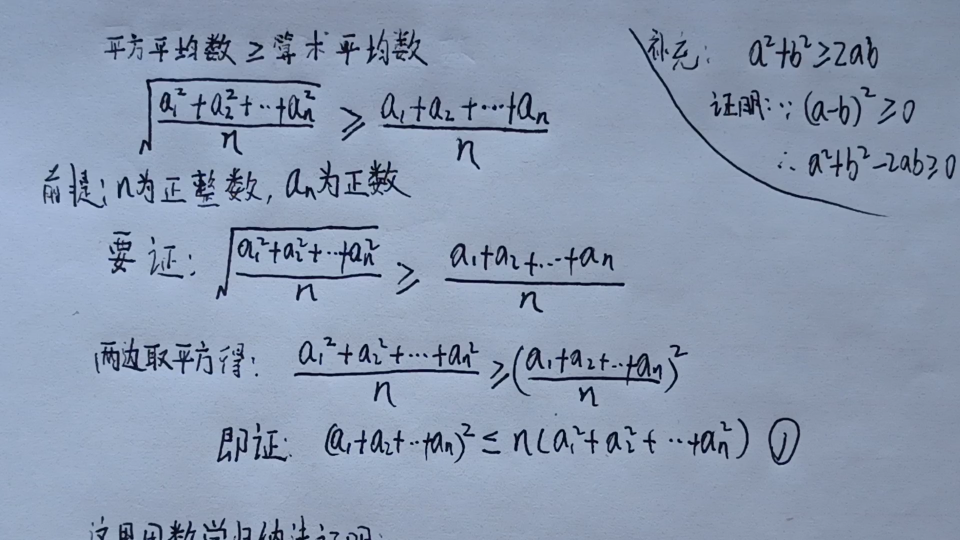 平方平均数≥算术平均数
√((a₁²+a₂²+…+aₙ²)/n) ≥ (a₁+a₂+…+aₙ)/n
前提:n为正整数,aₙ为正数
要证:√((a₁²+a₂²+…+aₙ²)/n) ≥ (a₁+a₂+…+aₙ)/n
两边取平方得:(a₁²+a₂²+…+aₙ²)/n ≥ ((a₁+a₂+…+aₙ)/n)²
即证:(a₁+a₂+…+aₙ)² ≤ n(a₁²+a₂²+…+aₙ²) ①
这里用数学归纳法证明:
补充:a²+b²≥2ab
证明:∵(a-b)²≥0
∴a²+b²-2ab≥0